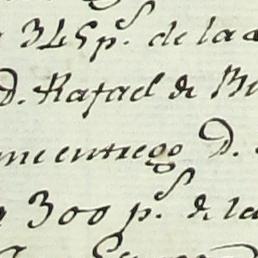 345 p.^s de la
D. Rafael de
me entrego D.
300 p.^s de la